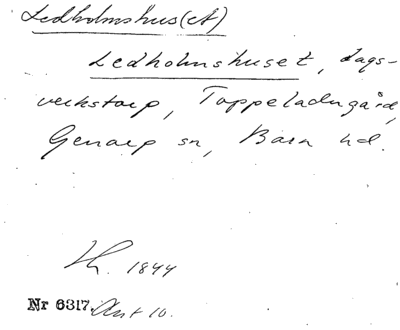 Ledholmshus(et)
Ledholmshuset, dags-
verkstorp, Toppeladugård,
Genarp sn, Bara hd.
Th. 1844
Nr 6317. Ant 10.